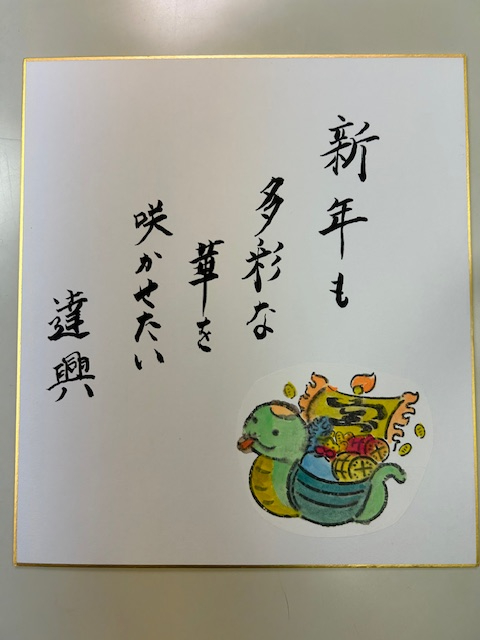 新年も
多彩な
華を
咲かせたい
達興
宝